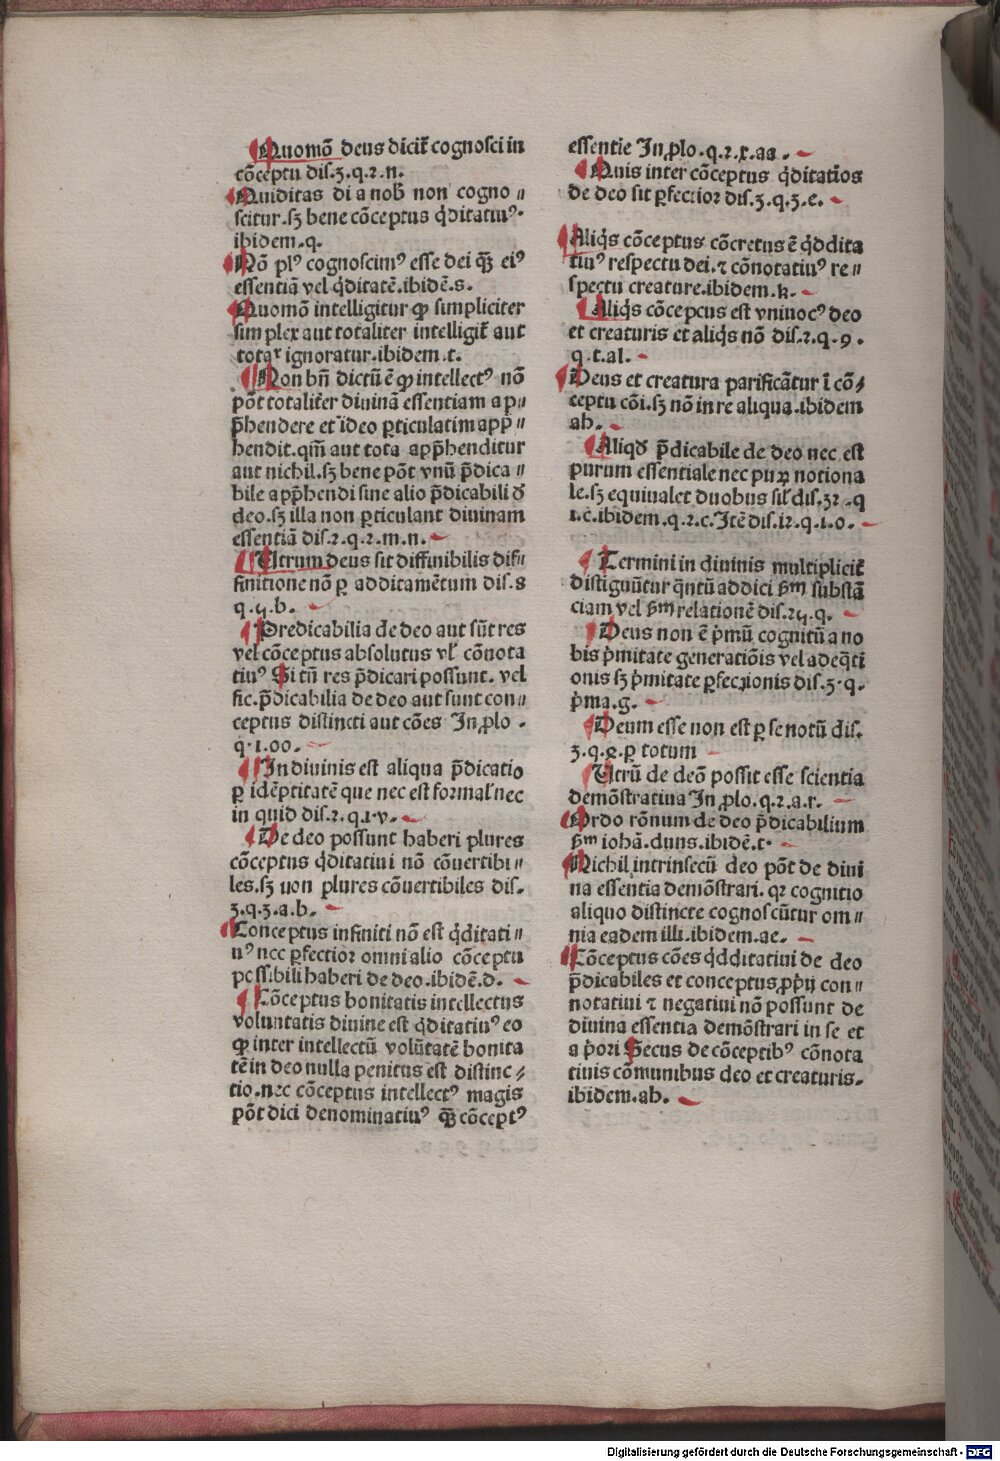 Quomō deus dicit᷑ cognosci in
cōceptu dis.3.q.2.n.
Quiditas di a nob̄ non cogno〃
scitur.sꝫ bene cōceptus q̇ditatiuꝰ.
ibidem.q.
Nō plꝰ cognoscimꝰ esse dei q̄ꝫ eiꝰ
essentiā vel q̇ditatē.ibidē.s.
Quomō intelligitur ꝙ simpliciter
simplex aut totaliter intelligit᷑ aut
totaʳ ignoratur.ibidem.t.
Non bn̄ dictū ē ꝙ intellectꝰ nō
pōt totalit᷑er diuinā essentiam a p〃
p̄hendere et ideo ꝑticulatim app̄〃
hendit.qm̄ aut tota app̄henditur
aut nichil.sꝫ bene pōt vnū p̄dica〃
bile app̄hendi sine alio p̄dicabili ꝺ̄
deo.sꝫ illa non ꝑticulant diuinam
essentiā dis.2.q.2.m.n.
Utrum deus sit diffinibilis dif〃
finitione nō ꝑ additamētum dis.8
q.4.b.
Predicabilia de deo aut sūt res
vel cōceptus absolutus vl̄ cōnota
tiuꝰ Si tn̄ res p̄dicari possunt. vel
sic.p̄dicabilia de deo aut sunt con〃
ceptus distincti aut cōes In ꝓlo.
q.1.oo.
In diuinis est aliqua p̄dicatio
ꝑ idēptitatē que nec est formal̄ nec
in quid dis.2.q.1.v.
De deo possunt haberi plures
cōceptus q̇ditatiui nō cōuertibi〃
les.sꝫ non plures cōuertibiles dis.
3.q.3.a.b.
Conceptus infiniti nō est q̇ditati〃
uꝰ nec ꝑfectior omni alio cōceptu
possibili haberi de deo.ibidē.d.
Cōceptus bonitatis intellectus
voluntatis diuine est q̇ditatiuꝰ eo
ꝙ inter intellectū volūtatē bonita
tē in deo nulla penitus est distinc〃
tio.nec cōceptus intellectꝰ magis
pōt dici denominatiuꝰ q̄ꝫ cōceptꝰ
essentie In ꝓlo.q.2.x.aa.
Quis inter cōceptus q̇ditatios
de deo sit ꝑfectior dis.3.q.3.e.
Aliq̇s cōceptus cōcretus ē q̇ddita
tiuꝰ respectu dei.⁊ cōnotatiuꝰ re〃
spectu creature.ibidem.k.
Aliq̇s cōceptus est vniuocꝰ deo
et creaturis et aliq̇s nō dis.2.q.9.
q.t.al.
Deus et creatura parificātur ī cō〃
ceptu cōi.sꝫ nō in re aliqua.ibidem
ab.
Aliqꝺ̄ p̄dicabile de deo nec est
purum essentiale nec puꝝ notiona
le.sꝫ equiualet duobus sil̄ dis.32.q
1.c.ibidem.q.2.c.Itē dis.12.q.1.o.
Termini in diuinis multiplicit᷑
distiguūtur q̄ntū addici ẜm substā
ciam vel ẜm relationē dis.24.q.
Deus non ē p̄mū cognitū a no
bis p̄mitate generatiōis vel adeq̄ti
onis sꝫ p̄mitate ꝑfectionis dis.3.q.
p̄ma.g.
Deum esse non est ꝑ se notū dis.
3.q.4.ꝑ totum
Utrū de deō possit esse scientia
demōstratiua In ꝓlo.q.2.a.r.
Ordo rōnum de deo p̄dicabilium
ẜm iohā.duns.ibidē.t.
Nichil intrinsecū deo pōt de diui
na essentia demōstrari.qꝛ cognitio
aliquo distincte cognoscūtur om〃
nia eadem illi.ibidem.ae.
Cōceptus cōes q̇dditatiui de deo
p̄dicabiles et conceptus ꝓprij con〃
notatiui ⁊ negatiui nō possunt de
diuina essentia demōstrari in se et
a p̄ori Secus de cōceptibꝰ cōnota
tiuis cōmunibus deo et creaturis.
ibidem.ah.
Digitalisierung gefördert durch die Deutsche Forschungsgemeinschaft - DFG